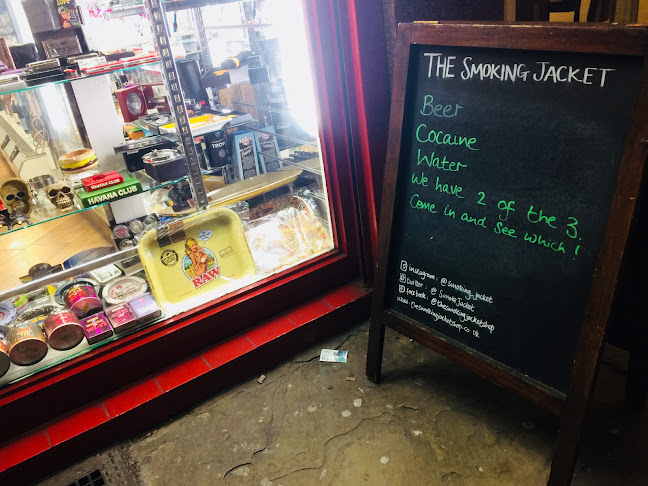 THE SMOKING JACKET
Beer
Cocaine
Water
We have 2 of the 3.
Come in and see which!
instagram: @smoking_jacket
twitter: @SmokeJacket
facebook: @thesmokingjacketshop
www.thesmokingjacketshop.co.uk
HAVANA CLUB
HAVANA CLUB
RAW
LOVE